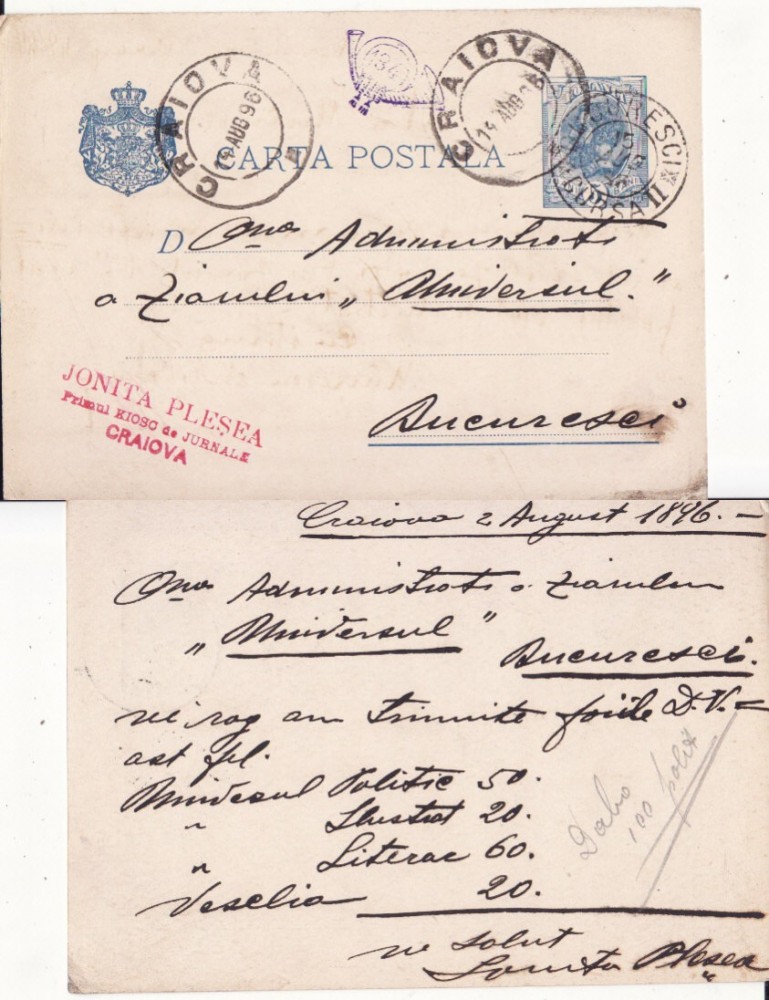 CRAIOVA
14 AUG 96
134
CRAIOVA
14 AUG 96
BUCURESCI
15
BURSA II
CARTA POSTALA
D Ona Administrati
a Ziarului „Universul."
JONITA PLESEA
Primul KIOSC de JURNALE
CRAIOVA
Bucuresci
Craiova 2 August 1896. –
Ona Administrati a Ziarului
„Universul"
Bucuresci.
ve rog am trimite foile D.V. =
ast fel.
Universul Politic 50.
" Ilustrat 20.
" Literac 60.
Veselia 20.
100 polit
ve salut
Jonita Plesea